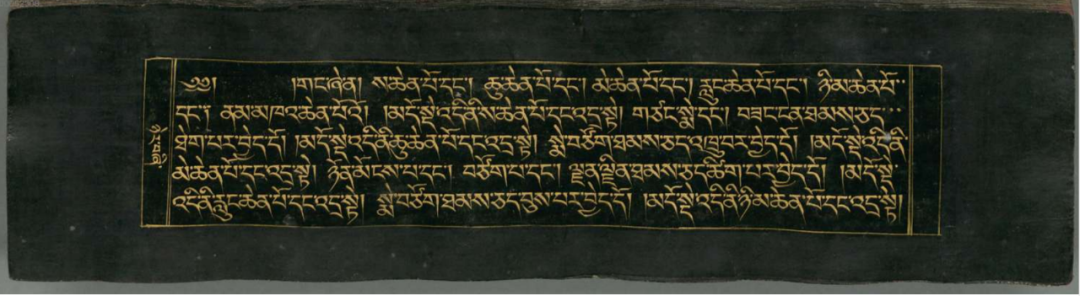 ༄༅། །གང་ཞེ་ན། ས་ཆེན་པོ་དང་། ཆུ་ཆེན་པོ་དང་། མེ་ཆེན་པོ་དང་། རླུང་ཆེན་པོ་དང་། ཉི་མ་ཆེན་པོ་
དང་། ནམ་མཁའ་ཆེན་པོའོ། །མདོ་སྡེ་འདི་ནི་ས་ཆེན་པོ་དང་འདྲ་སྟེ། གཙང་སྨེ་དང་། བཟང་ངན་ཐམས་ཅད་
ཐེག་པར་བྱེད་དོ། །མདོ་སྡེ་འདི་ནི་ཆུ་ཆེན་པོ་དང་འདྲ་སྟེ། སྨེ་བཙོག་ཐམས་ཅད་འཁྲུད་པར་བྱེད་དོ། །མདོ་སྡེ་འདི་ནི་
མེ་ཆེན་པོ་དང་འདྲ་སྟེ། ཉོན་མོངས་པ་དང་། བཙོག་པ་དང་། ལྷན་ལྷིན་ཐམས་ཅད་ཚིག་པར་བྱེད་དོ། །མདོ་སྡེ་
འདི་ནི་རླུང་ཆེན་པོ་དང་འདྲ་སྟེ། སྨེ་བཙོག་ཐམས་ཅད་བུས་པར་བྱེད་དོ། །མདོ་སྡེ་འདི་ནི་ཉི་མ་ཆེན་པོ་དང་འདྲ་སྟེ།